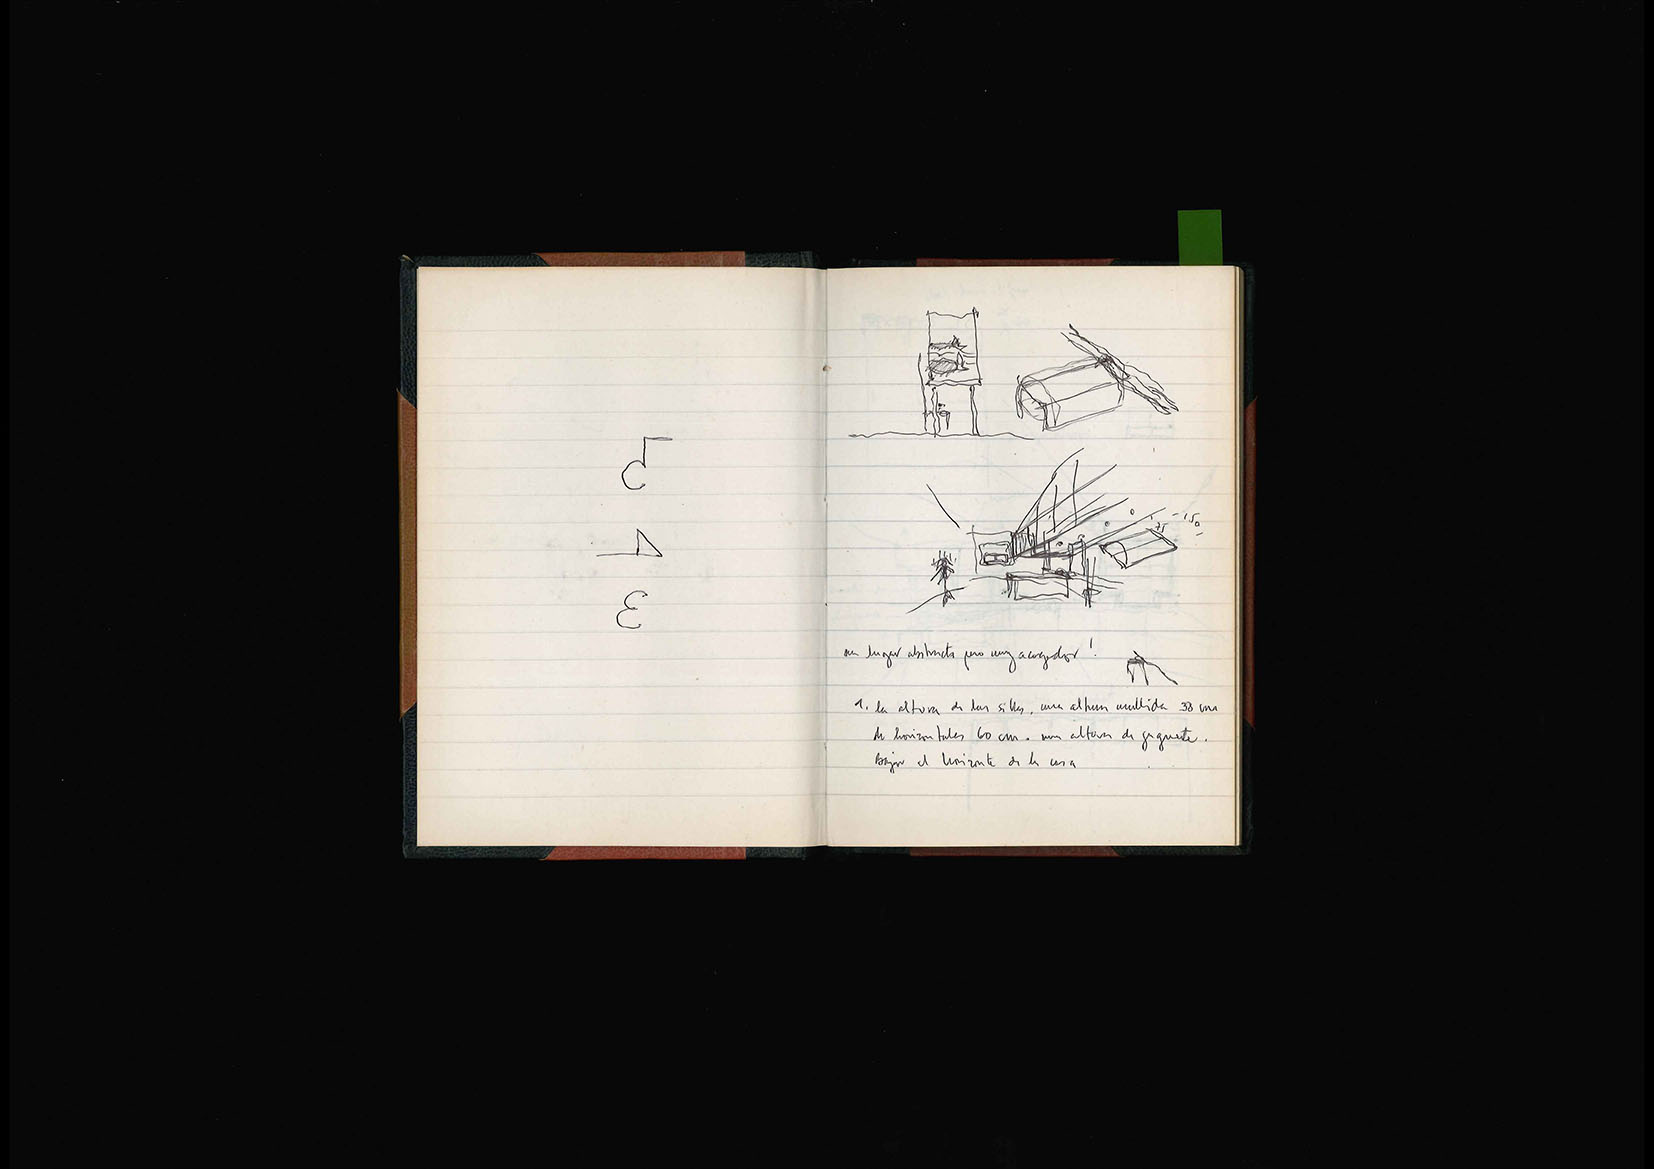 5
4
3
75 - 150
un lugar abstracto pero muy acogedor!
1. la altura de las sillas, una altura mullida 38 cm
de horizontales 60 cm. una altura de juguete.
Bajar el horizonte de la casa